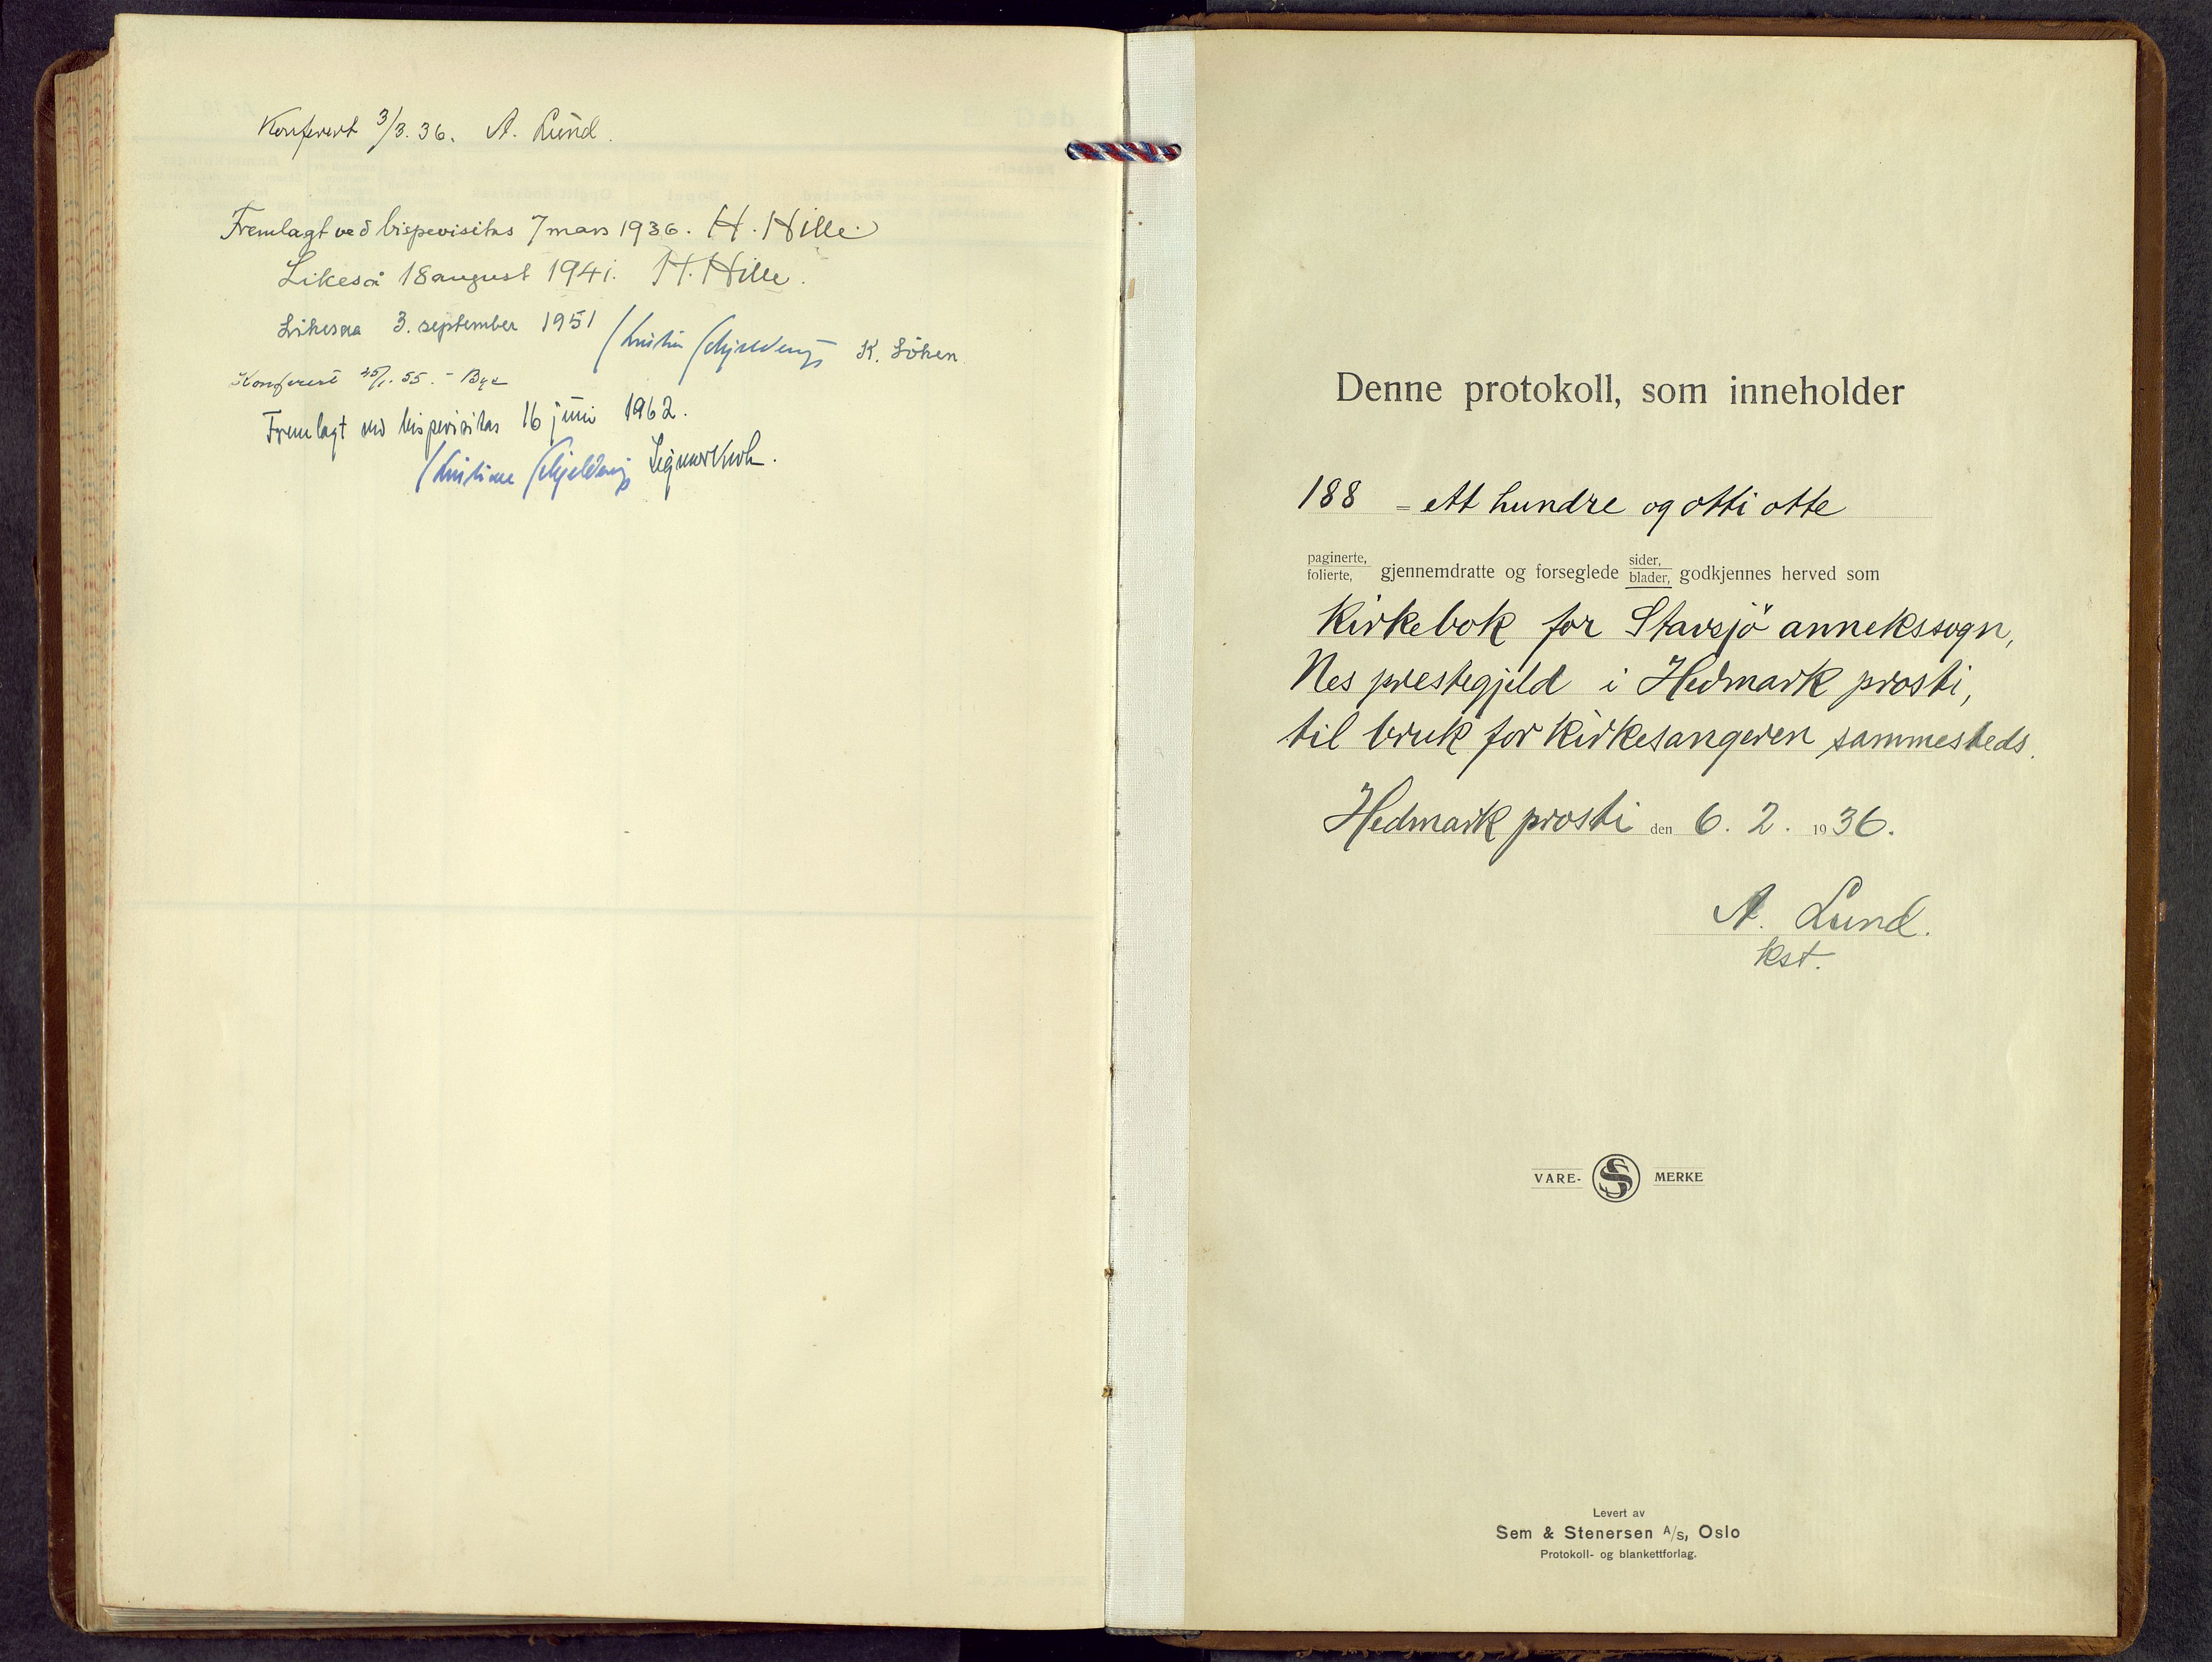 Konferert 3/3. 36. A. Lund.
Fremlagt ved bispevisitas 7 mars 1936. H. Hille.
Likeså 18 august 1941. H. Hille.
Likesaa 3. september 1951 Kristian Schjelderup K. Löken
Konferert 25/1. 55. - Bye
Fremlagt ved bispevisitas 16 juni 1962.
Kristian Schjelderup
Denne protokoll, som inneholder
188 = ett hundre og otti otte
paginerte, folierte, gjennemdratte og forseglede sider, blader, godkjennes herved som
Kirkebok for Stavsjö annekssogn,
Nes prestegjeld i Hedmark prosti,
til bruk for kirkesangeren sammesteds.
Hedmark prosti den 6. 2. 1936.
A. Lund.
kst.
VARE- SS MERKE
Levert av
Sem & Stenersen A/s, Oslo
Protokoll- og blankettforlag.